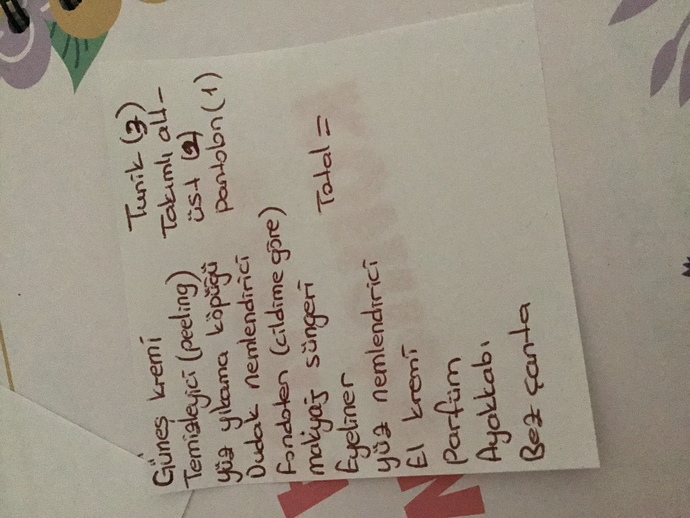 Güneş kremi
Temizleyici (peeling)
yüz yıkama köpüğü
Dudak nemlendirici
Fondoten (cildime göre)
makyaj süngeri
Eyeliner
yüz nemlendirici
El kremi
Parfüm
Ayakkabı
Bez çanta
Tunik (3)
Takımlı alt-
üst (2)
pantolon (1)
Total =